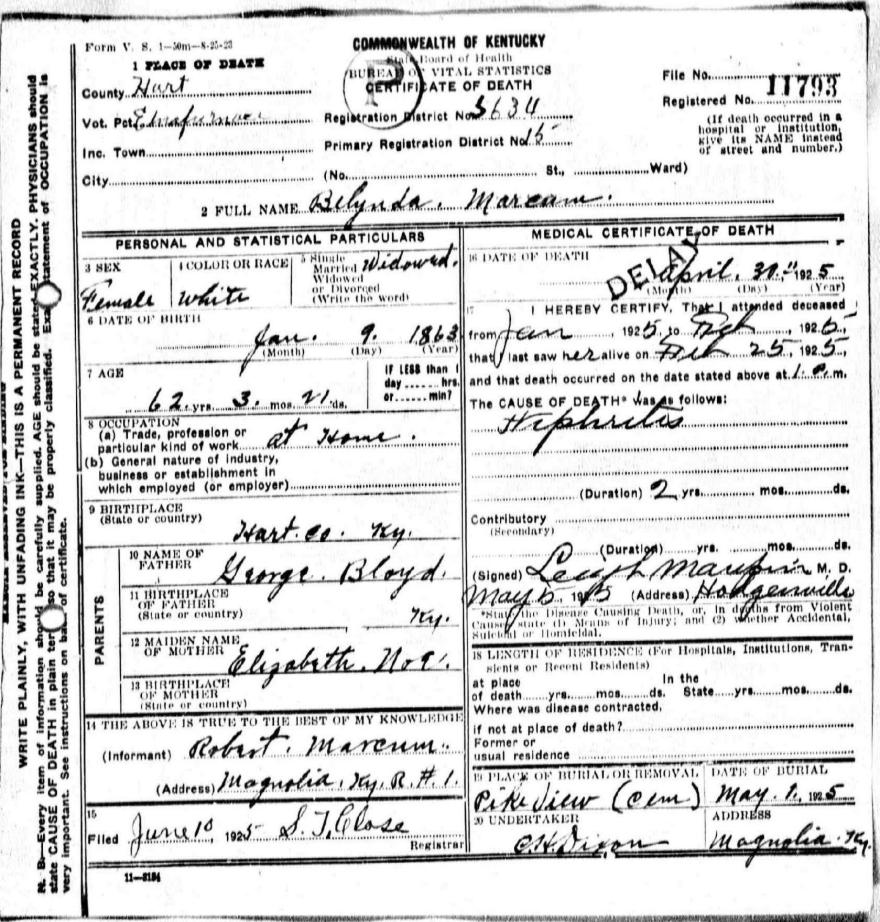 Form V. S. 1—50m—8-25-23
COMMONWEALTH OF KENTUCKY
State Board of Health
BUREAU OF VITAL STATISTICS
CERTIFICATE OF DEATH
P
1 PLACE OF DEATH
County Hart
Vot. Pct.
Inc. Town
City
Registration District No. 5634
Primary Registration District No. 15
(No. St., Ward)
File No. 11793
Registered No.
(If death occurred in a
hospital or institution,
give its NAME instead
of street and number.)
2 FULL NAME Belynda. Marcum.
PERSONAL AND STATISTICAL PARTICULARS
3 SEX
Female
4 COLOR OR RACE
White
5 Single
Married
Widowed
or Divorced
(Write the word)
Widowed.
6 DATE OF BIRTH
Jan. 9. 1863
(Month) (Day) (Year)
7 AGE
62 yrs. 3. mos. 21 ds.
IF LESS than 1
day ...... hrs.
or ...... min?
8 OCCUPATION
(a) Trade, profession or
particular kind of work at Home.
(b) General nature of industry,
business or establishment in
which employed (or employer)
9 BIRTHPLACE
(State or country)
Hart. co. Ky.
PARENTS
10 NAME OF
FATHER George. Bloyd.
11 BIRTHPLACE
OF FATHER
(State or country) Ky.
12 MAIDEN NAME
OF MOTHER Elizabeth.
13 BIRTHPLACE
OF MOTHER
(State or country)
14 THE ABOVE IS TRUE TO THE BEST OF MY KNOWLEDGE
(Informant) Robert. Marcum.
(Address) Magnolia. Ky. R. #1.
15
Filed June 10 1925 S. T. Close
Registrar
11—3184
MEDICAL CERTIFICATE OF DEATH
16 DATE OF DEATH
DELAY
April. 30. 1925
(Month) (Day) (Year)
17 I HEREBY CERTIFY, That I attended deceased
from Jan 1925, to Feb 1925,
that I last saw her alive on Feb 25, 1925,
and that death occurred on the date stated above at 1. m.
The CAUSE OF DEATH* was as follows:
Nephritis
(Duration) 2 yrs. mos. ds.
Contributory
(Secondary)
(Duration) yrs. mos. ds.
(Signed) Leigh Maupin M. D.
May 6, 1925 (Address) Hodgenville
*State the Disease Causing Death, or, in deaths from Violent
Causes state (1) Means of Injury; and (2) whether Accidental,
Suicidal or Homicidal.
18 LENGTH OF RESIDENCE (For Hospitals, Institutions, Tran-
sients or Recent Residents)
at place In the
of death yrs. mos. ds. State yrs. mos. ds.
Where was disease contracted,
if not at place of death?
Former or
usual residence
19 PLACE OF BURIAL OR REMOVAL
Pike View (cem)
DATE OF BURIAL
May. 1. 1925
20 UNDERTAKER
C.H. Dixon
ADDRESS
Magnolia. Ky.
WRITE PLAINLY, WITH UNFADING INK—THIS IS A PERMANENT RECORD
N. B.—Every item of information should be carefully supplied. AGE should be stated EXACTLY. PHYSICIANS should
state CAUSE OF DEATH in plain terms so that it may be properly classified. Exact statement of OCCUPATION is
very important. See instructions on back of certificate.